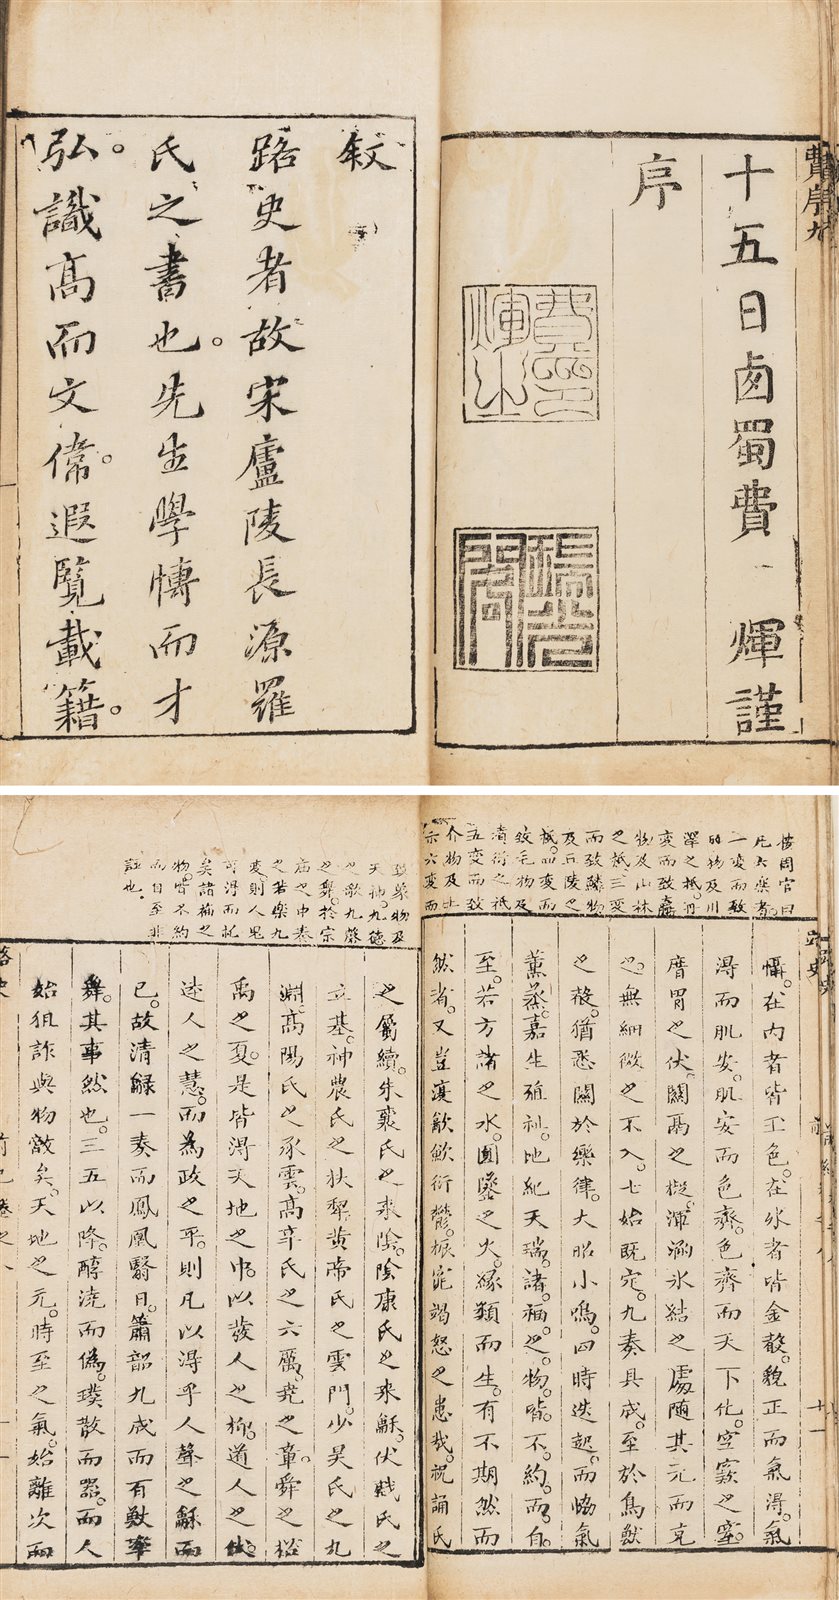 費序九
十五日鹵蜀費煇謹
序
費煇之印
敘
路史者故宋廬陵長源羅
氏之書也。先生學博而才
弘。識高而文偉。遐覽載籍。
按周官曰
凡六樂者。
一變而致
羽物及川
澤之祇。再
變而致臝
物及山林
之祇。三變
而致鱗物
及丘陵之
祇。四變而
致毛物及
墳衍之祇
五變而致
介物及土
示六變而
懾。在內者皆玉色。在外者皆金聲。貌正而氣得。氣
得而肌安。肌安而色齊。色齊而天下化。空竅之窒。
脣胃之伏。關鬲之礙。渾涵氷結之處。随其元而克
之。無細微之不入。七始既定。九奏具成。至於鳥獸
之殽。猶悉關於樂律。大昭小鳴。四時迭起。而恊氣
薰蒸。嘉生殖祉。地紀天瑞。諸福之物。皆不約而自
至。若方諸之水。圓鑒之火。縁類而生。有不期然而
然者。又豈復歊歍衍鬱。振寵竭怒之患哉。祝誦氏
致象物及
天神。九德
之歌。九磬
之舞。於宗
廟之中奏
之若樂九
變則人鬼
可得而禮
矣諸福之
物。皆不約
而自至非
誣也。
之屬續。朱襄氏之來隂。隂康氏之來龢。伏戲氏之
立基。神農氏之扶犁。黄帝氏之雲門。少昊氏之九
淵。高陽氏之承雲。高辛氏之六厲。堯之章。舜之招
禹之夏。是皆得天地之中。以發人之柳。道人之伏。
達人之慧。而為政之平。則凡以得乎人聲之龢而
已。故清龣一奏而鳳凰翳日。簫韶九成而有獸率
舞。其事然也。三五以降。醇澆而偽。璞散而器。而人
始狙詐與物敵矣。天地之元。時至之氣。始離次而